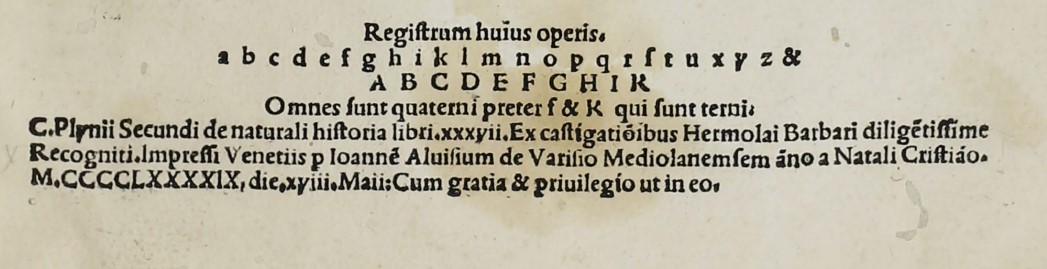 Regiſtrum huius operis.
a b c d e f g h i k l m n o p q r ſ t u x y z &
A B C D E F G H I K
Omnes ſunt quaterni preter f & K qui ſunt terni:
C.Plynii Secundi de naturali hiſtoria libri.xxxyii.Ex caſtigatiōibus Hermolai Barbari diligētiſſime
Recogniti.Impreſſi Venetiis p Ioannē Aluiſium de Variſio Mediolanemſem āno a Natali Criſtiāo.
M.CCCCLXXXXIX, die.xyiii.Maii:Cum gratia & priuilegio ut in eo,